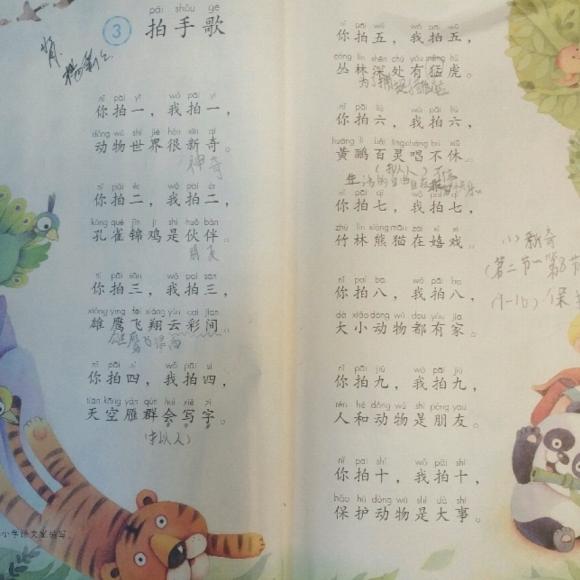 pāi shǒu gē
3 拍手歌
nǐ pāi yī wǒ pāi yī
你拍一，我拍一，
dòng wù shì jiè hěn xīn qí
动物世界很新奇。
神奇
nǐ pāi èr wǒ pāi èr
你拍二，我拍二，
kǒng què jǐn jī shì huǒ bàn
孔雀锦鸡是伙伴。
朋友
nǐ pāi sān wǒ pāi sān
你拍三，我拍三，
xióng yīng fēi xiáng yún cǎi jiān
雄鹰飞翔云彩间。
nǐ pāi sì wǒ pāi sì
你拍四，我拍四，
tiān kōng yàn qún huì xiě zì
天空雁群会写字。
(拟人)
nǐ pāi wǔ wǒ pāi wǔ
你拍五，我拍五，
cóng lín shēn chù yǒu měng hǔ
丛林深处有猛虎。
nǐ pāi liù wǒ pāi liù
你拍六，我拍六，
huáng lí bǎi líng chàng bù xiū
黄鹂百灵唱不休。
(拟人)
nǐ pāi qī wǒ pāi qī
你拍七，我拍七，
zhú lín xióng māo zài xī xì
竹林熊猫在嬉戏。
nǐ pāi bā wǒ pāi bā
你拍八，我拍八，
dà xiǎo dòng wù dōu yǒu jiā
大小动物都有家。
nǐ pāi jiǔ wǒ pāi jiǔ
你拍九，我拍九，
rén hé dòng wù shì péng you
人和动物是朋友。
nǐ pāi shí wǒ pāi shí
你拍十，我拍十，
bǎo hù dòng wù shì dà shì
保护动物是大事。
新奇